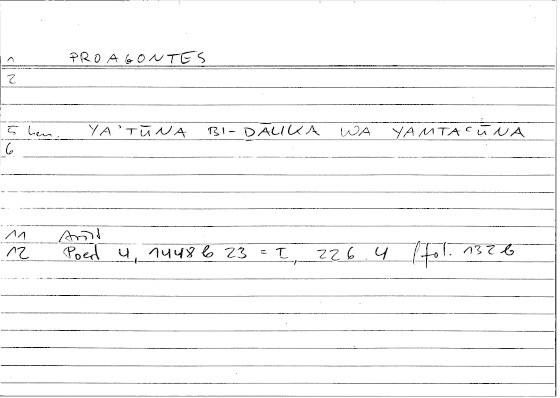 1 PROAGONTES
2
5 hen. YA'TŪNA BI-ḎĀLIKA WA YAMTAʿŪNA
6
11 Arist
12 Poet 4, 1448 b 23 = T, 226.4 / fol. 132 b